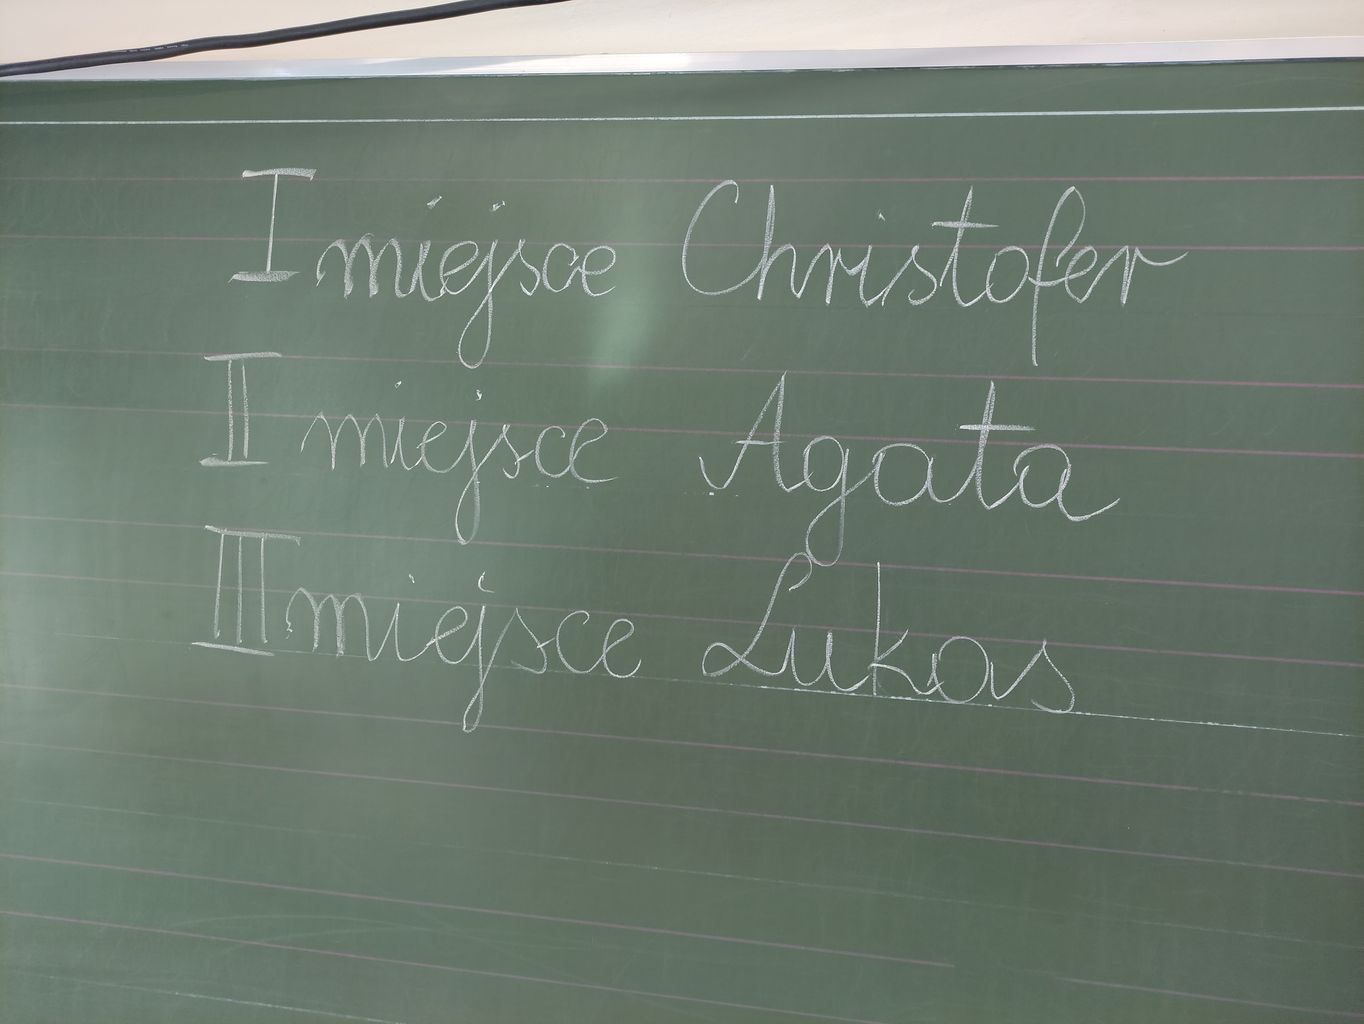 I miejsce Christofer
II miejsce Agata
III miejsce Lukas